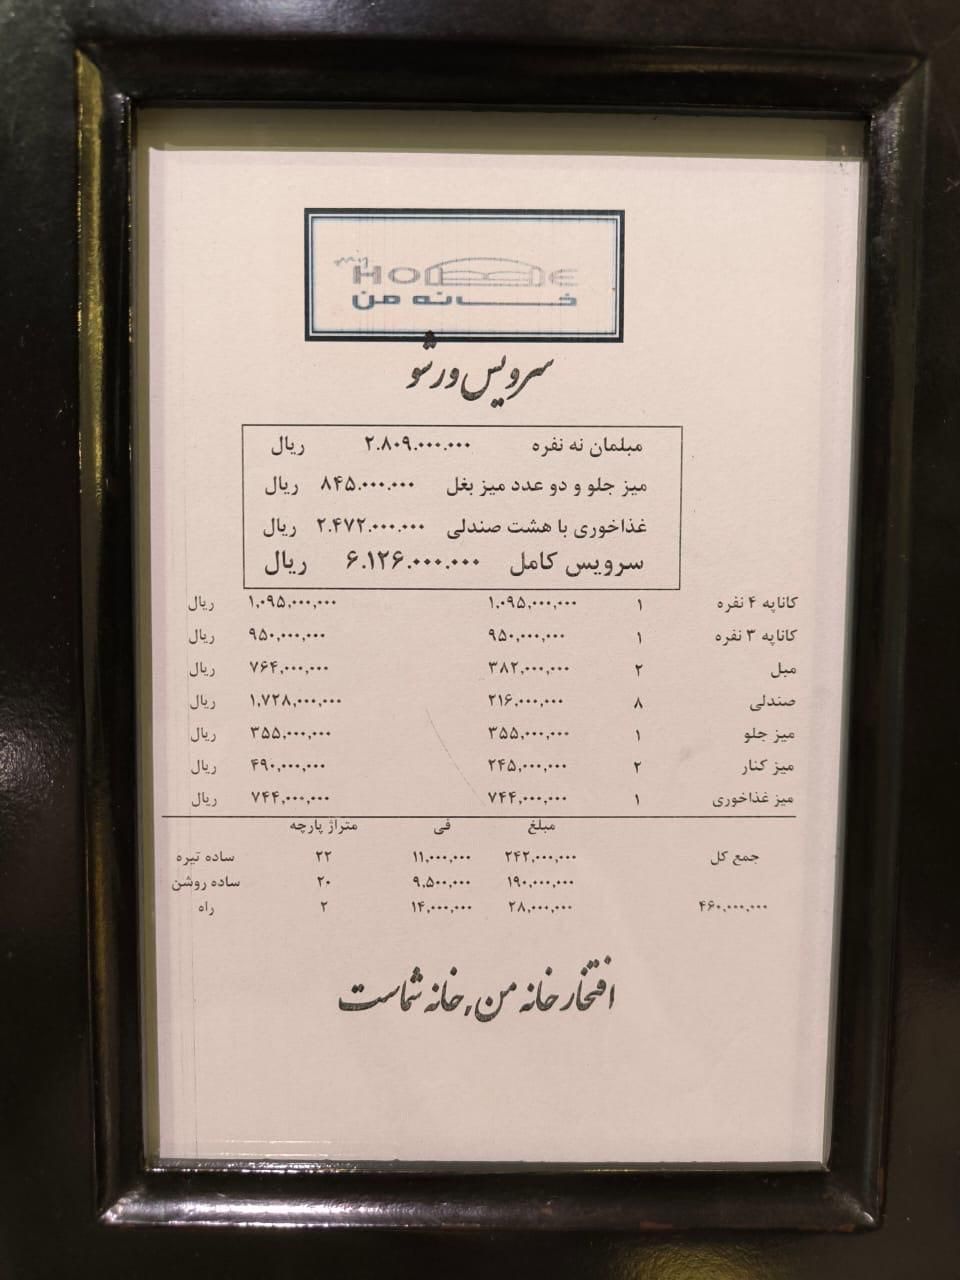 my HOME
خانه من
سرویس ورشو
مبلمان نه نفره ۲.۸۰۹.۰۰۰.۰۰۰ ریال
میز جلو و دو عدد میز بغل ۸۴۵.۰۰۰.۰۰۰ ریال
غذاخوری با هشت صندلی ۲.۴۷۲.۰۰۰.۰۰۰ ریال
سرویس کامل ۶.۱۲۶.۰۰۰.۰۰۰ ریال
کاناپه ۴ نفره ۱ ۱,۰۹۵,۰۰۰,۰۰۰ ۱,۰۹۵,۰۰۰,۰۰۰ ریال
کاناپه ۳ نفره ۱ ۹۵۰,۰۰۰,۰۰۰ ۹۵۰,۰۰۰,۰۰۰ ریال
مبل ۲ ۳۸۲,۰۰۰,۰۰۰ ۷۶۴,۰۰۰,۰۰۰ ریال
صندلی ۸ ۲۱۶,۰۰۰,۰۰۰ ۱,۷۲۸,۰۰۰,۰۰۰ ریال
میز جلو ۱ ۳۵۵,۰۰۰,۰۰۰ ۳۵۵,۰۰۰,۰۰۰ ریال
میز کنار ۲ ۲۴۵,۰۰۰,۰۰۰ ۴۹۰,۰۰۰,۰۰۰ ریال
میز غذاخوری ۱ ۷۴۴,۰۰۰,۰۰۰ ۷۴۴,۰۰۰,۰۰۰ ریال
مبلغ فی متراژ پارچه
جمع کل ۲۴۲,۰۰۰,۰۰۰ ۱۱,۰۰۰,۰۰۰ ۲۲ ساده تیره
۱۹۰,۰۰۰,۰۰۰ ۹,۵۰۰,۰۰۰ ۲۰ ساده روشن
۴۶۰,۰۰۰,۰۰۰ ۲۸,۰۰۰,۰۰۰ ۱۴,۰۰۰,۰۰۰ ۲ راه
افتخار خانه من, خانه شماست